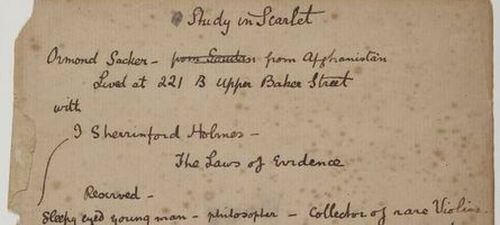 Study in Scarlet
Ormond Sacker – from Soudan from Afghanistan
Lived at 221 B Upper Baker Street
with
I Sherrinford Holmes –
The Laws of Evidence
Reserved –
Sleepy eyed young man – philosopher – Collector of rare Violins